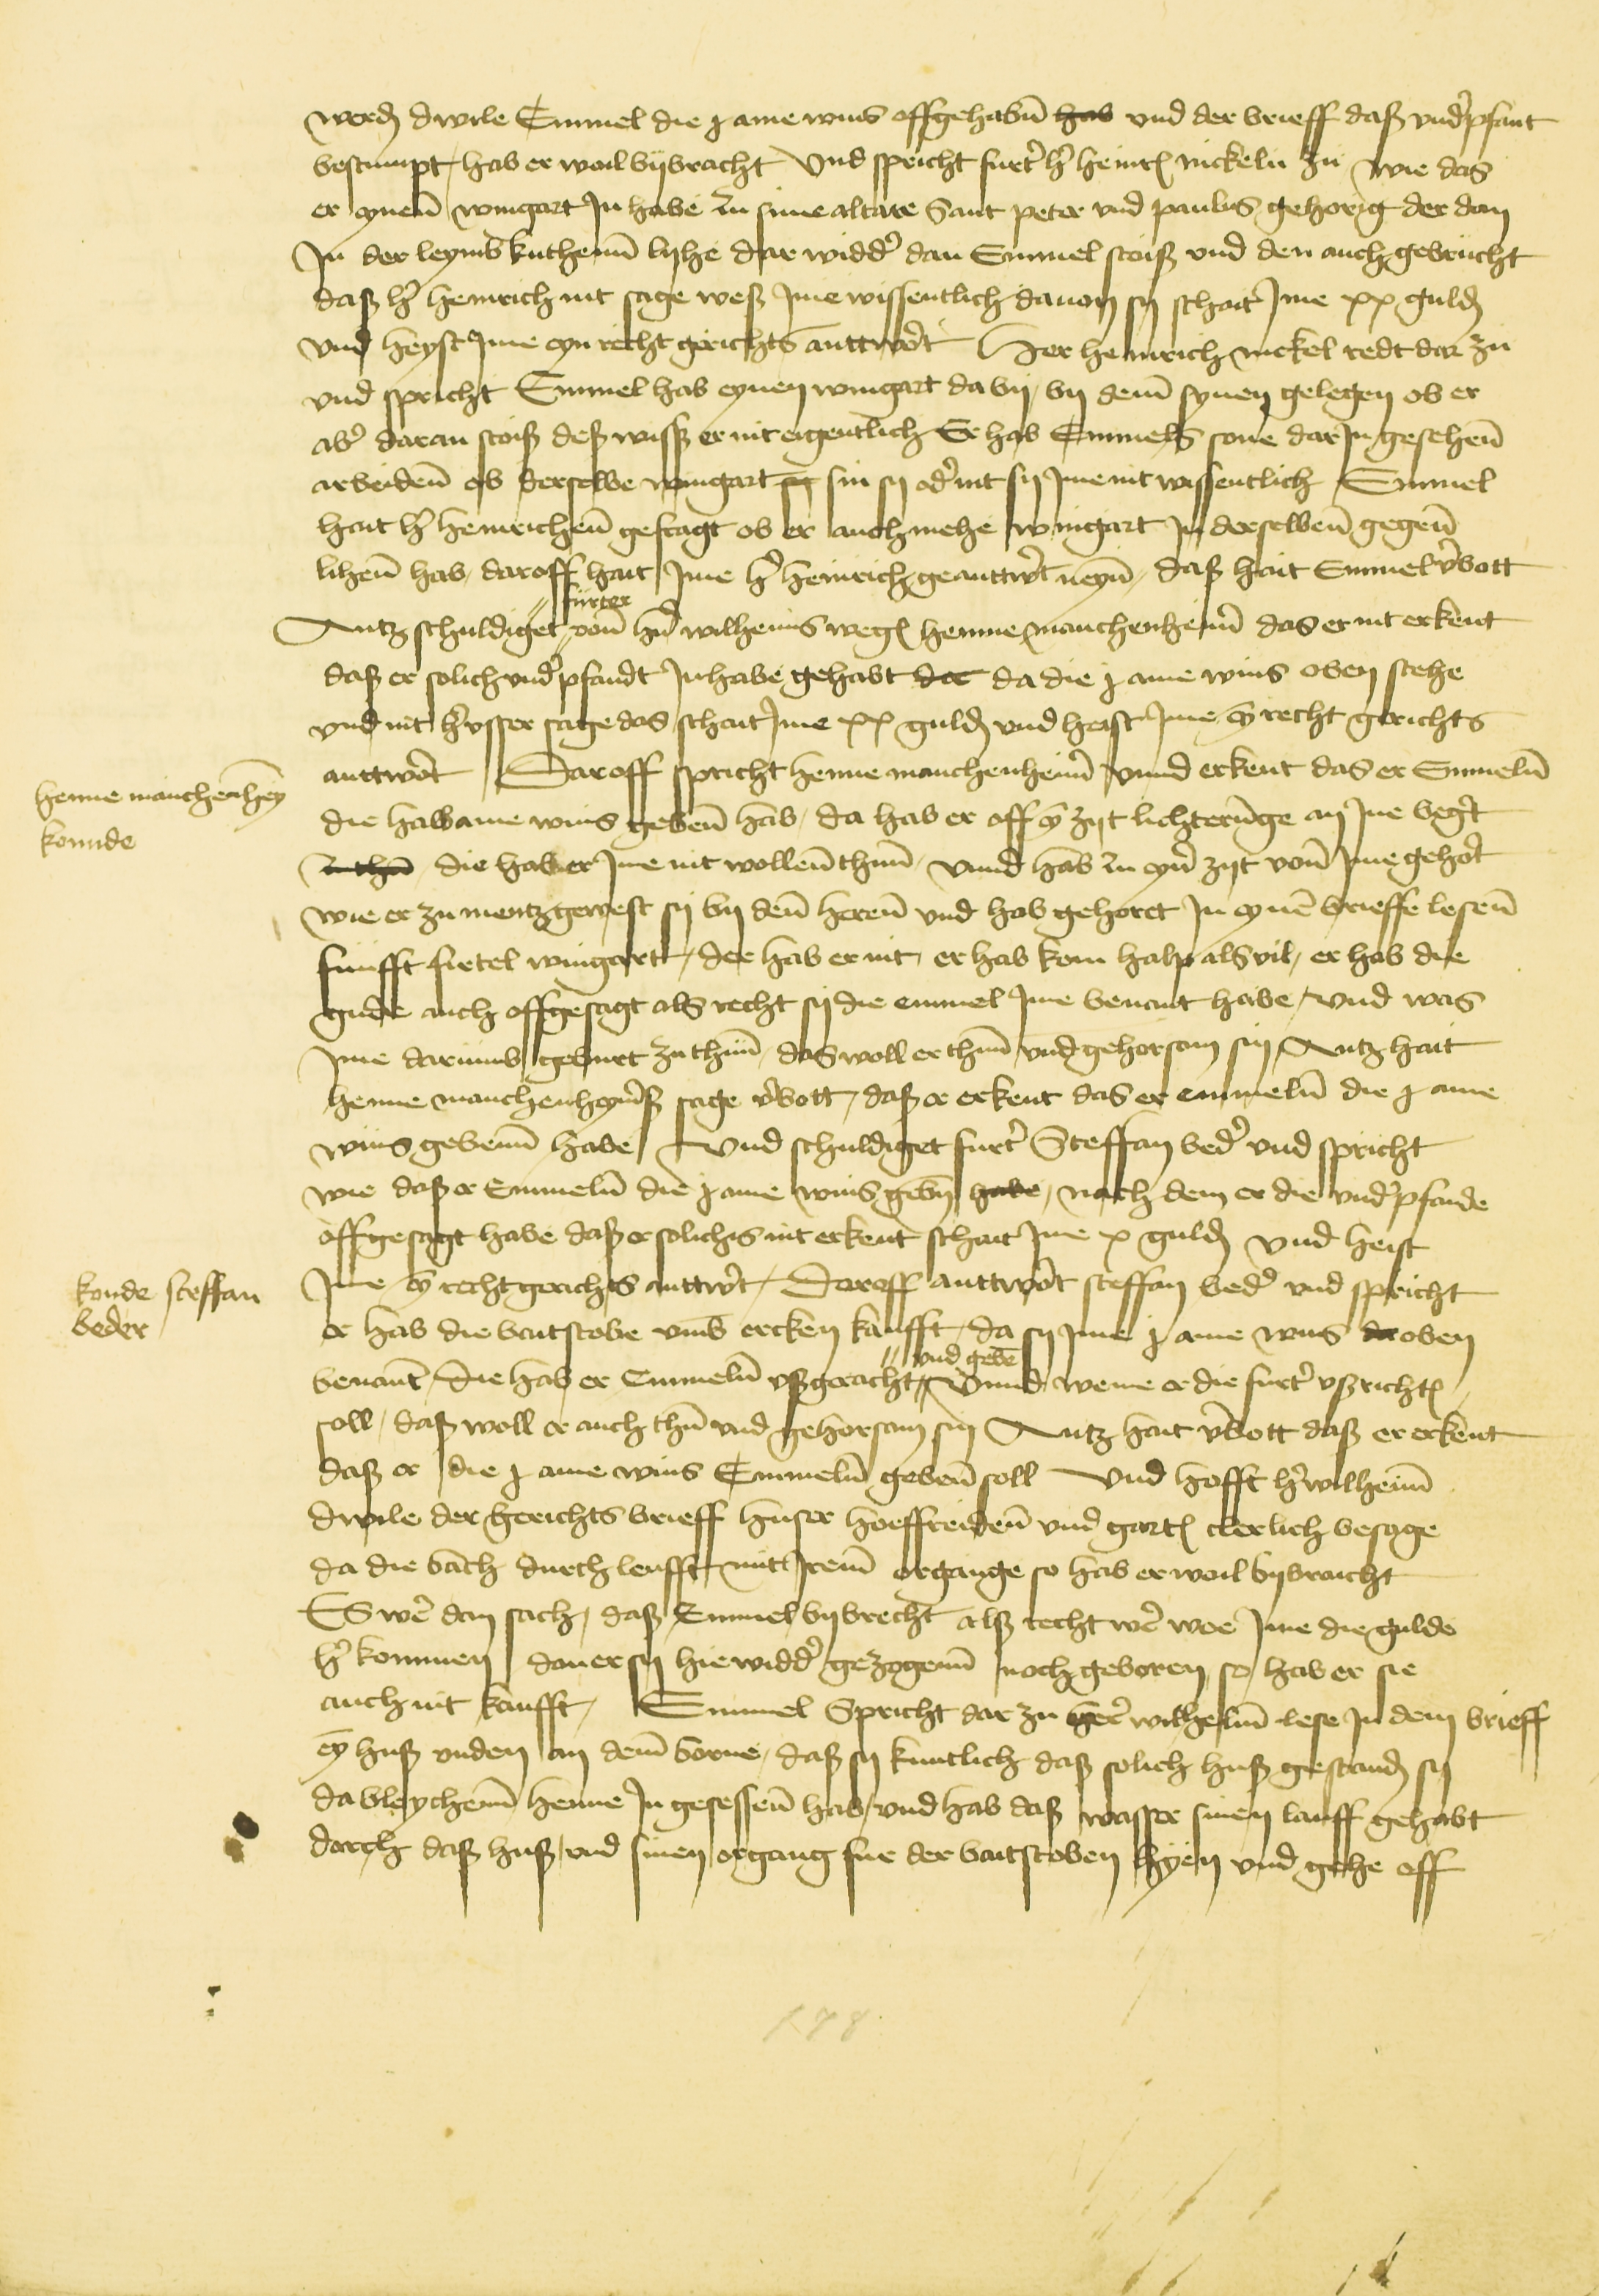 werden dwile Emmel die j ame wins offgehabñ hab und der brieff daß vnd'pfant
bestimpt, hab er woil bijbracht Und spricht furt' h' heinr nickeln zu wie das
er eyneñ wingart Inhabe zu sime altare Sant peter vnd paulus gehorig der dan
In der leymb kutheñ lyhe dar widd' dan Emmel stoiß vnd den auch gebrucht
daß h' heinrich nit sage weß Ime wissentlich dauon sij schait Ime xx gulden
vnd heyst Ime eyn recht gerichts anttw't Her heinrich nickel redt dar zu
vnd spricht Emmel hab eynen wingart da by, by dem synen gelegen ob er
ab' daran stoiß deß wiß er nit eigentlich Er hab Emmels sone darIn geseheñ
arbeideñ ob derselbe wingart sij sin sij od' nit sij Ime nit wissentlich Emmel
hait h' heinricheñ gefragt ob er auch mehe wingart In derselbeñ gegeñ
liheñ hab, daroff hait Ime h' heinrich geanttw't neyñ, daß hait Emmel v'bott
furter
Antz schuldiget, voñ h'n wilhelms wegen henne manchenheim' das er nit erkent
daß er solich vnd'pfandt Inhabe gehabt der da die j ame wins oben stehe
vnd nit h'vsser sage das schait Ime xx gulden vnd heist Ime ey recht gerichts
anttw't Daroff spricht henne manchenheim' vnnd erkent das er Emmelñ
henne manchenhey
konnde
die halb ame wins gebeñ hab, da hab er off ey zijt lichterunge an Ine beg't
zu thun die hab er Ime nit wolleñ thuñ, vnnd hab zu eyn' zijt voñ Ime gehort
wie er zu mentz gewest sij by deñ hereñ vnd hab gehoret In eyne brieffe leseñ
funfft firtel wingart, der hab er nit, er hab kom halp als vil, er hab die
gude auch offgesagt als recht sij die emmel Ime benant habe, vnd was
Ime darumb geburt zu thuñ, das woll er thuñ vnd gehorsam sin Antz hait
henne manchenheym's sage v'bott, daß er erkent das er emmelñ die j ame
wins gebenñ habe Und schuldiget furt' Steffan bed' vnd spricht
wie daß er Emmelñ die j ame wins gebñ habe, nach dem er die vnd'pfande
offgesagt habe daß er solichs nit erkent schait Ime x gulden vnd heist
Ime ey recht gerichts anttw't, Daroff anttw't steffan bed' vnd spricht
konde steffan
beder
er hab die baitstobe vmb ercken kaufft, da sij Ime j ame wins da oben
vnd gebe
benant, die hab er Emmelñ vßgeracht, Vnnd weme er die furt' vßrichten
soll, daß woll er auch thuñ vnd gehorsam sin Antz hait v'bott daß er erkent
daß er die j ame wins Emmelñ gebeñ soll Und hofft h' wilhelm
dwile der gerichts brieff huser hoeffreideñ vnd garten clerlich besage
da die bach durch leufft mit Ireñ organge so hab er woil bijbraicht
Es wer dan sach, daß Emmel bijbrecht als recht wer woe Ime die gulde
h' kommen dan er sij hie widd' gezogenñ noch geboren, so hab er sie
auch nit kaufft, Emmel Spricht dar zu her wilhelm lese In dem brieff
ey huß vnden an dem borne, daß sij kuntlich daß solich huß gestanden sij
da bleychenñ henne In gesesseñ hab, vnd hab daß wasser sinen lauff gehabt
dorch daß huß, vnd sinen organg fur der baitstoben hyen vnd gehe off
178